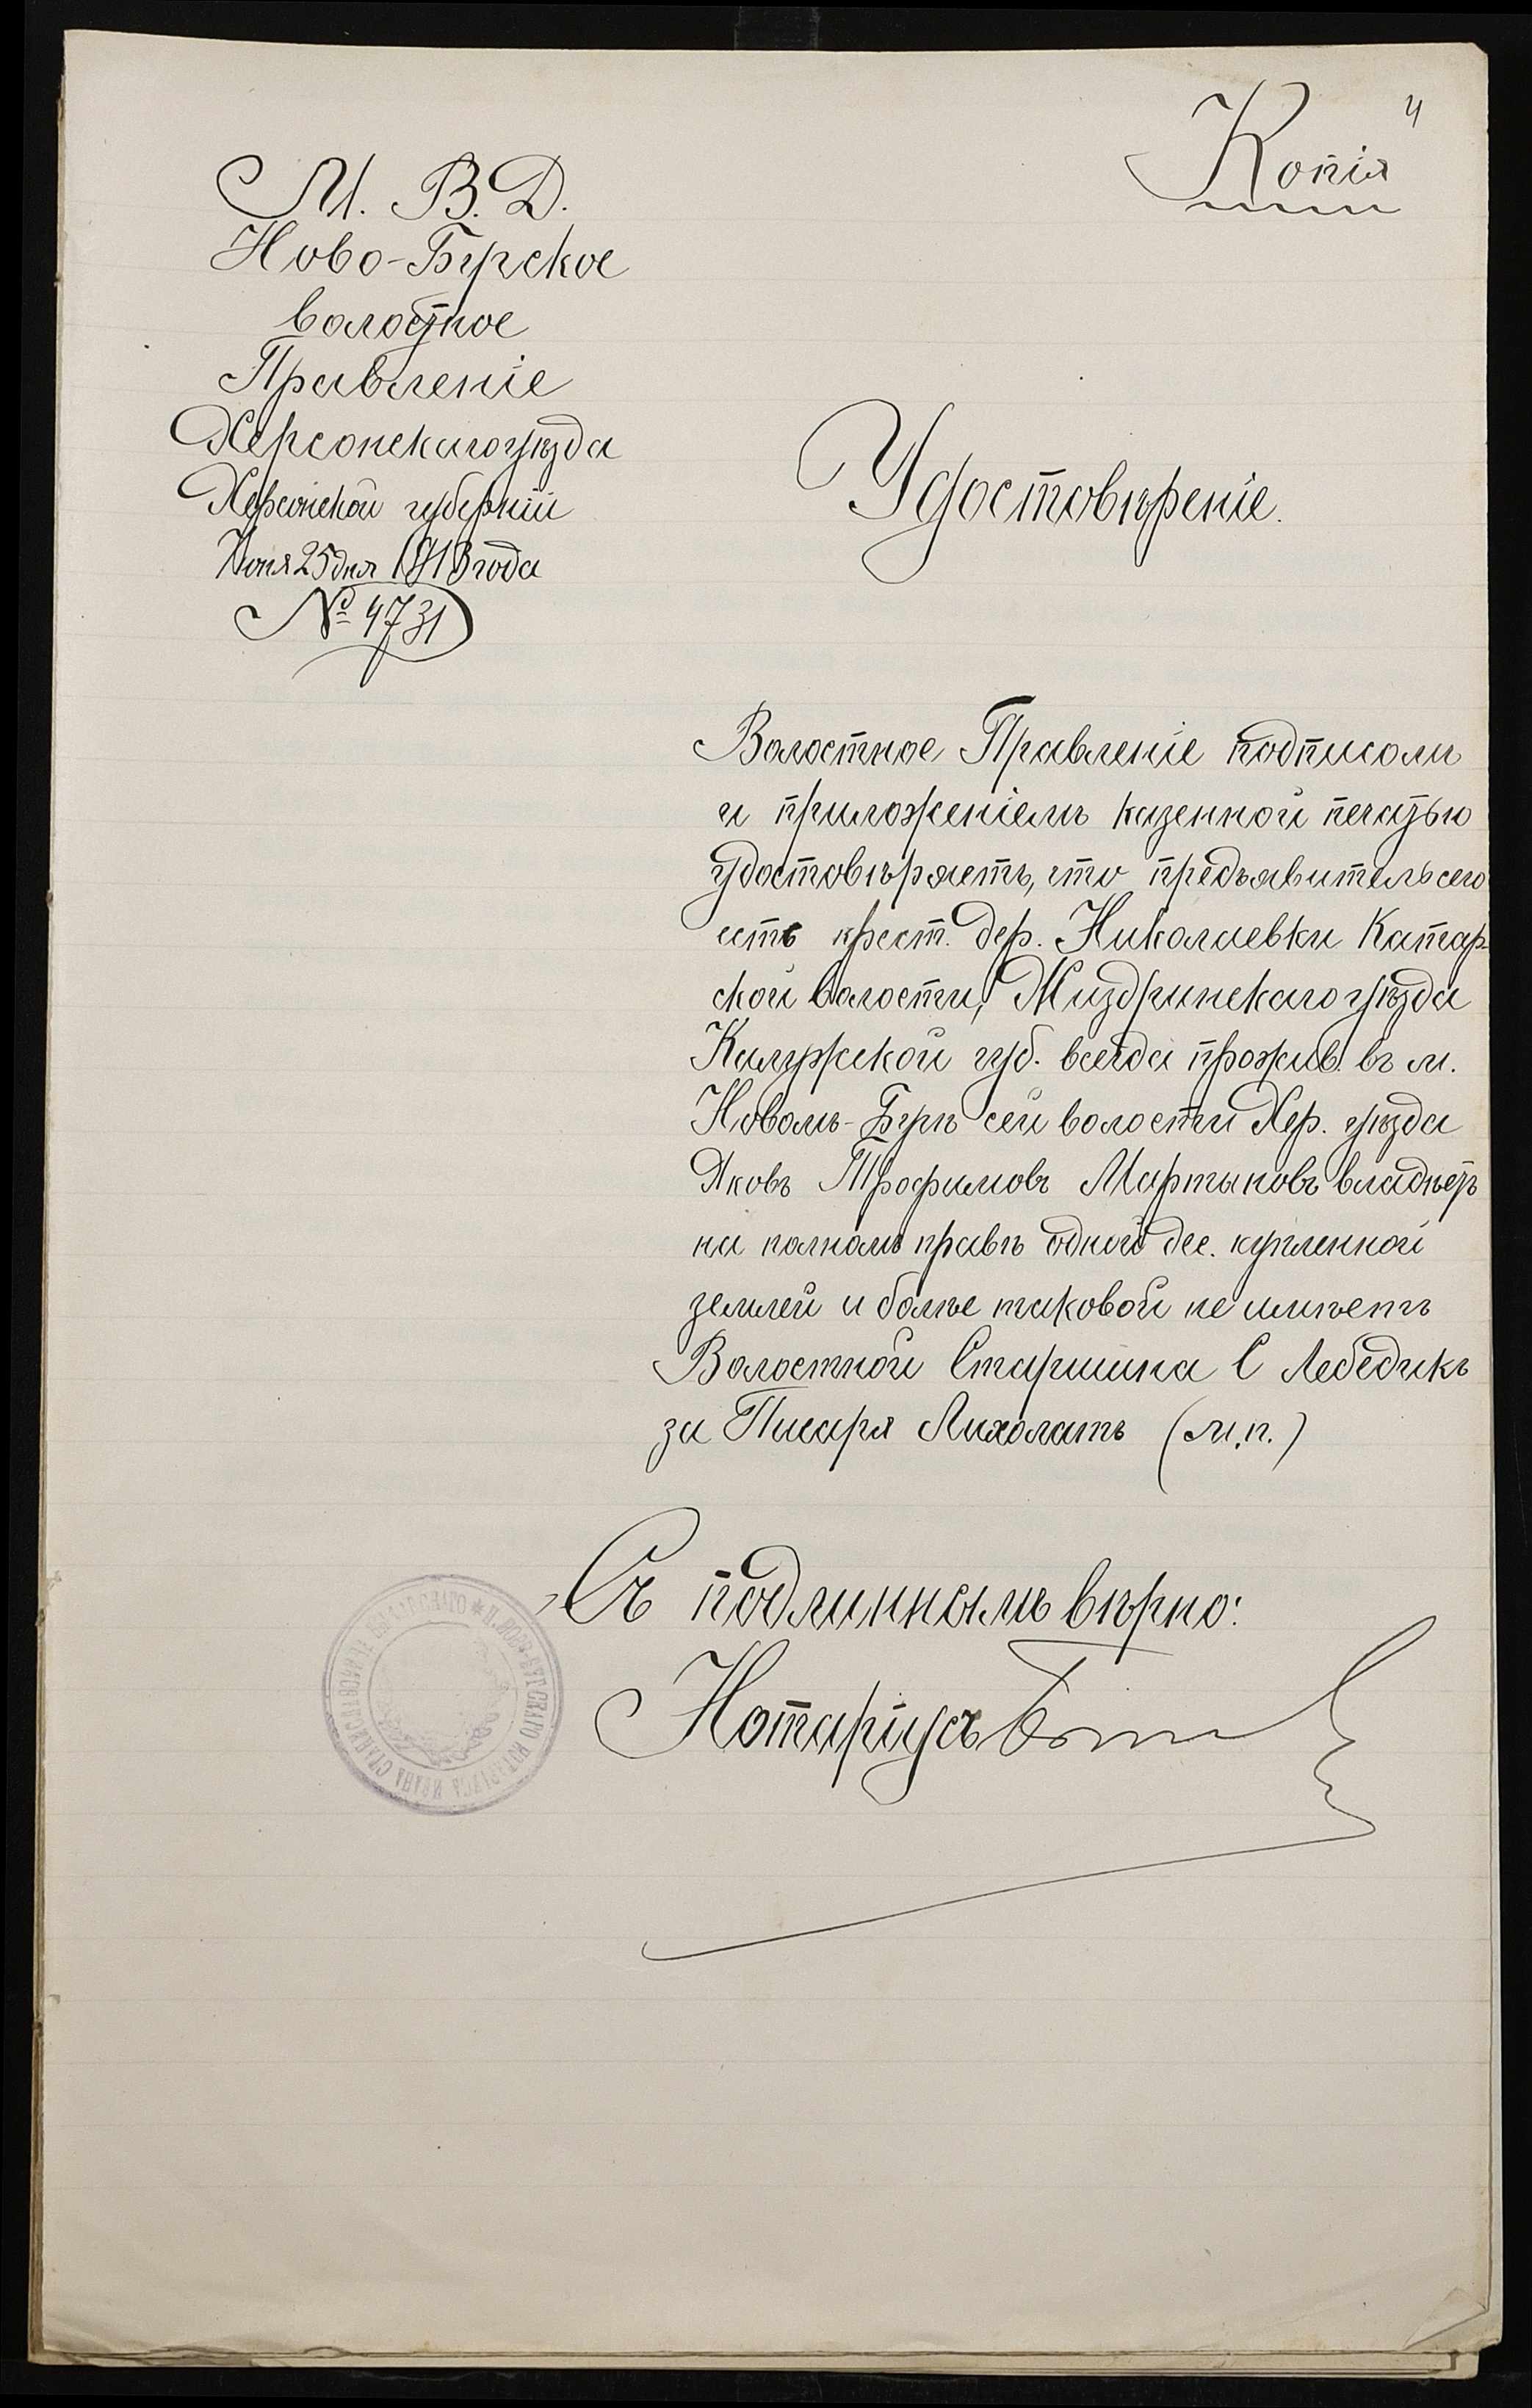 Копія
4
М. В. Д.
Ново-Бугское
волостное
Правленіе
Херсонскаго уѣзда
Херсонской губерніи
Іюня 25 дня 1913 года
№ 4731
Удостовѣреніе.
Волостное Правленіе подписомъ
и приложеніемъ казенной печатью
удостовѣряетъ, что предъявитель сего
есть крест. дер. Николаевки Катар-
ской волости, Миздринскаго уѣзда
Калужской губ. всегда прожив. въ м.
Новомъ-Бугѣ сей волости Хер. уѣзда
Яковъ Трофимовъ Мартыновъ владѣетъ
на полномъ правѣ одной дес. купленной
землей и болѣе таковой не имѣетъ
Волостной Старшина С Лебедикъ
за Писаря Лихолатъ (м.п.)
Съ подлиннымъ вѣрно:
Нотаріусъ
НОВО-БУГСКАГО НОТАРІУСА ИВАНА СТАНИСЛАВОВИЧА